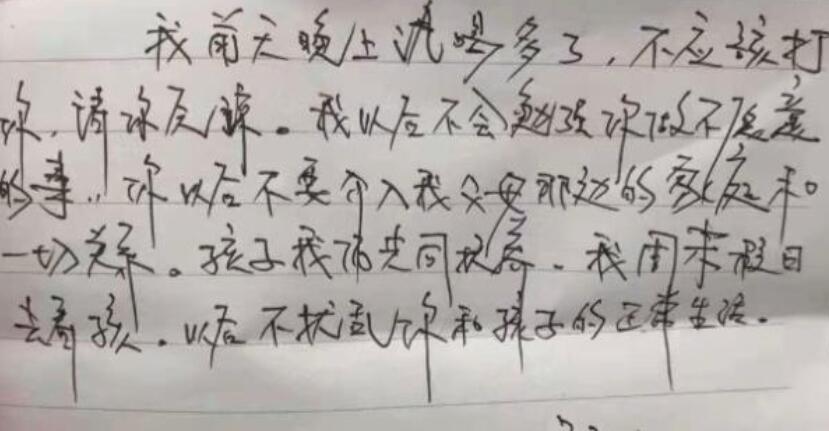 我前天晚上洒喝多了，不应该打
你，请你反谅。我以后不会勉强你做不愿意
的事，你以后不要介入我父母那边的家庭和
一切关系。孩子我你共同抚养。我周末假日
去看孩。以后不扰乱你和孩子的正常生活。